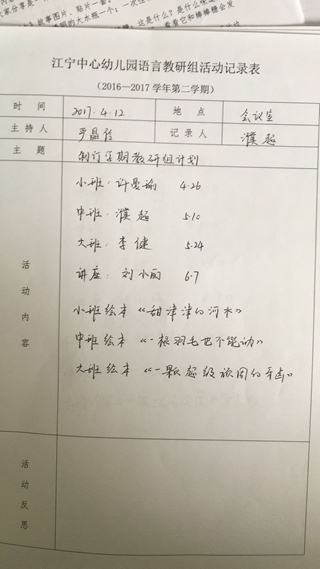 江宁中心幼儿园语言教研组活动记录表
（2016—2017学年第二学期）
时 间 2017.4.12 地 点 会议室
主持人 记录人 濮超
主 题 制订学期教研组计划
小班：许曼瑜 4.26
中班：濮超 5.10
大班：李健 5.24
讲座：刘小丽 6.7
小班绘本《甜津津的河水》
中班绘本《一根羽毛也不能动》
大班绘本《一颗超级顽固的牙齿》
活动内容
活动反思